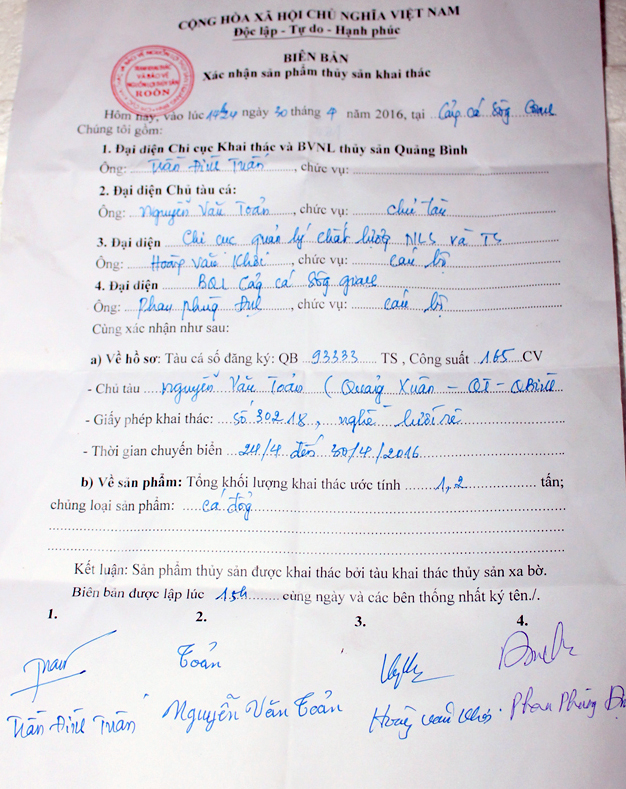 CỘNG HÒA XÃ HỘI CHỦ NGHĨA VIỆT NAM
Độc lập - Tự do - Hạnh phúc
BIÊN BẢN
Xác nhận sản phẩm thủy sản khai thác
HOÒN
Hôm nay, vào lúc ngày 30 tháng 4 năm 2016, tại Cảng cá Sông Gianh
Chúng tôi gồm:
1. Đại diện Chi cục Khai thác và BVNL thủy sản Quảng Bình
Ông: Trần Đình Tuấn, chức vụ:
2. Đại diện Chủ tàu cá:
Ông: Nguyễn Văn Toản, chức vụ: chủ tàu
3. Đại diện Chi cục quản lý chất lượng NLS và TS
Ông: Hoàng Văn Khôi, chức vụ: cán bộ
4. Đại diện BQL Cảng cá Sông Gianh
Ông: Phan Phùng, chức vụ: cán bộ
Cùng xác nhận như sau:
a) Về hồ sơ: Tàu cá số đăng ký: QB 93333 TS , Công suất 165 CV
- Chủ tàu Nguyễn Văn Toản ( Quảng Xuân - QT - QBình
- Giấy phép khai thác: số 30218, nghề lưới rê
- Thời gian chuyến biển 24/4 đến 30/4/2016
b) Về sản phẩm: Tổng khối lượng khai thác ước tính 1,2 tấn;
chủng loại sản phẩm: cá
Kết luận: Sản phẩm thủy sản được khai thác bởi tàu khai thác thủy sản xa bờ.
Biên bản được lập lúc 15h cùng ngày và các bên thống nhất ký tên./.
1. 2. 3. 4.
Toản
Trần Đình Tuấn Nguyễn Văn Toản Hoàng Văn Khôi Phan Phùng